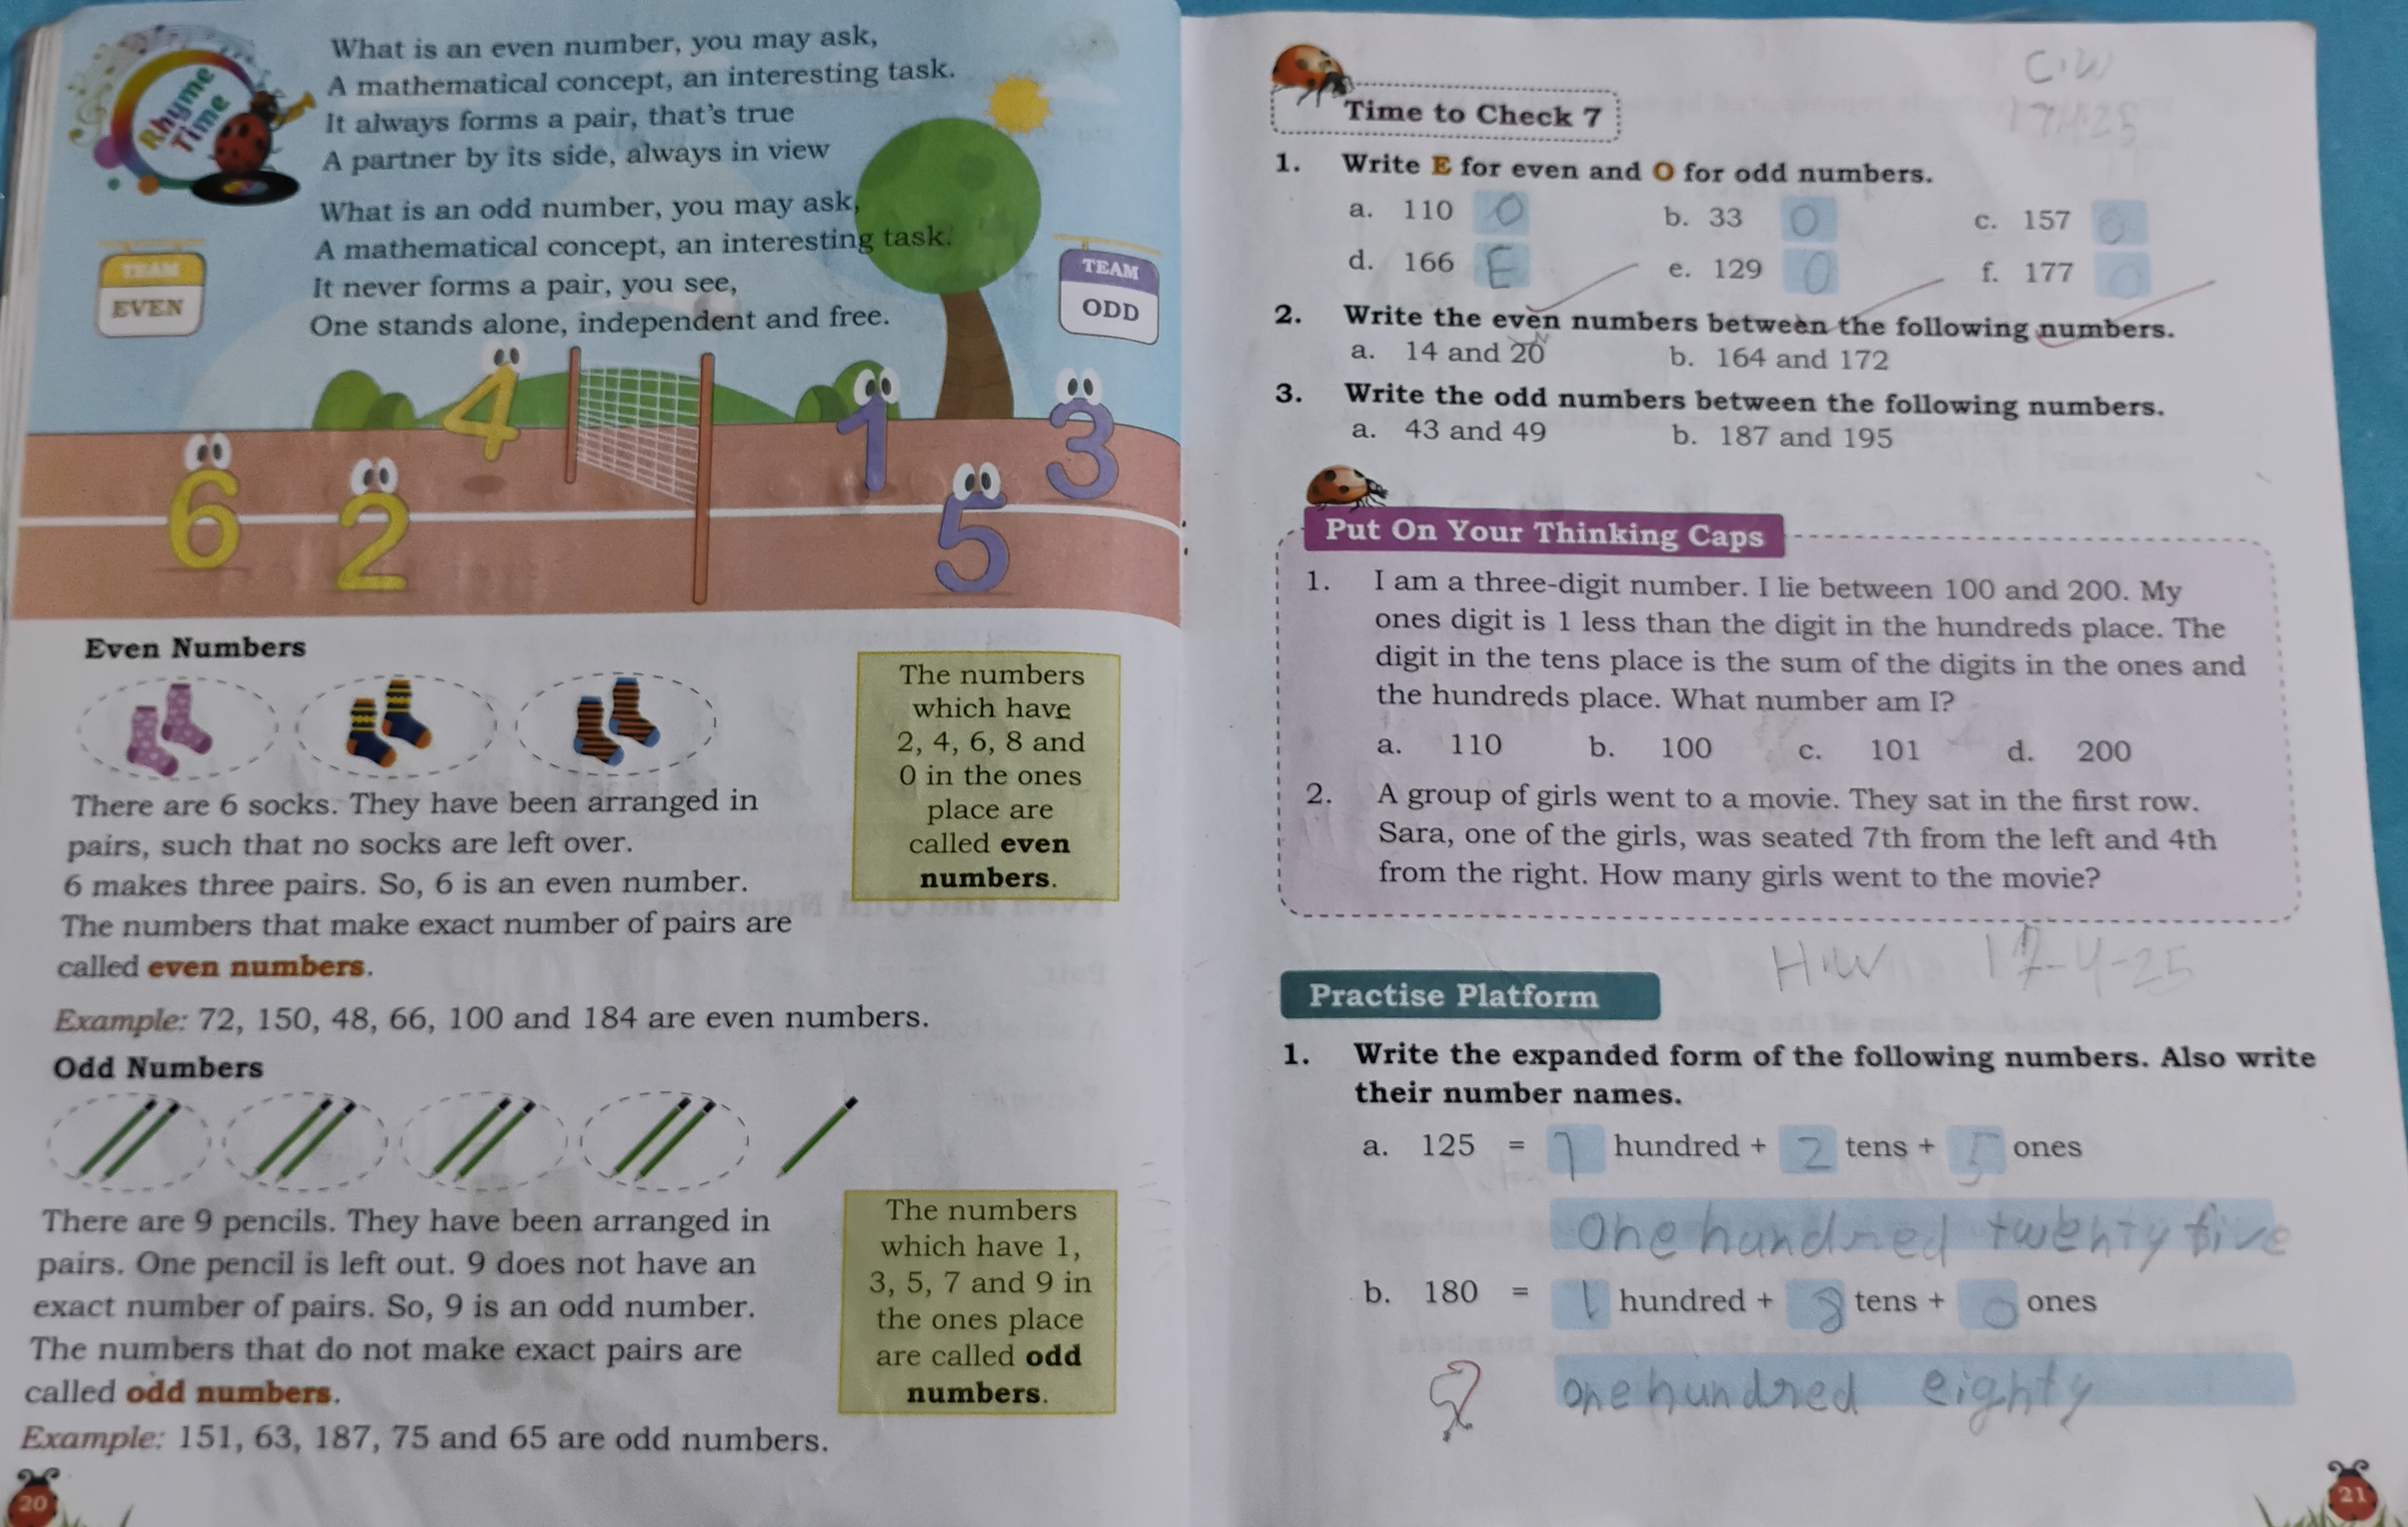 Rhyme
Time
What is an even number, you may ask,
A mathematical concept, an interesting task.
It always forms a pair, that's true
A partner by its side, always in view
What is an odd number, you may ask,
A mathematical concept, an interesting task.
It never forms a pair, you see,
One stands alone, independent and free.
TEAM
EVEN
TEAM
ODD
4
1
3
6
2
5
Even Numbers
There are 6 socks. They have been arranged in
pairs, such that no socks are left over.
6 makes three pairs. So, 6 is an even number.
The numbers that make exact number of pairs are
called even numbers.
The numbers
which have
2, 4, 6, 8 and
0 in the ones
place are
called even
numbers.
Example: 72, 150, 48, 66, 100 and 184 are even numbers.
Odd Numbers
There are 9 pencils. They have been arranged in
pairs. One pencil is left out. 9 does not have an
exact number of pairs. So, 9 is an odd number.
The numbers that do not make exact pairs are
called odd numbers.
The numbers
which have 1,
3, 5, 7 and 9 in
the ones place
are called odd
numbers.
Example: 151, 63, 187, 75 and 65 are odd numbers.
20
C.W
17.4.25
Time to Check 7
1. Write E for even and O for odd numbers.
a. 110 O b. 33 O c. 157 O
d. 166 E e. 129 O f. 177 O
2. Write the even numbers between the following numbers.
a. 14 and 20 b. 164 and 172
3. Write the odd numbers between the following numbers.
a. 43 and 49 b. 187 and 195
Put On Your Thinking Caps
1. I am a three-digit number. I lie between 100 and 200. My
ones digit is 1 less than the digit in the hundreds place. The
digit in the tens place is the sum of the digits in the ones and
the hundreds place. What number am I?
a. 110 b. 100 c. 101 d. 200
2. A group of girls went to a movie. They sat in the first row.
Sara, one of the girls, was seated 7th from the left and 4th
from the right. How many girls went to the movie?
H.W 17-4-25
Practise Platform
1. Write the expanded form of the following numbers. Also write
their number names.
a. 125 = 1 hundred + 2 tens + 5 ones
One hundred twenty five
b. 180 = 1 hundred + 8 tens + 0 ones
one hundred eighty
21